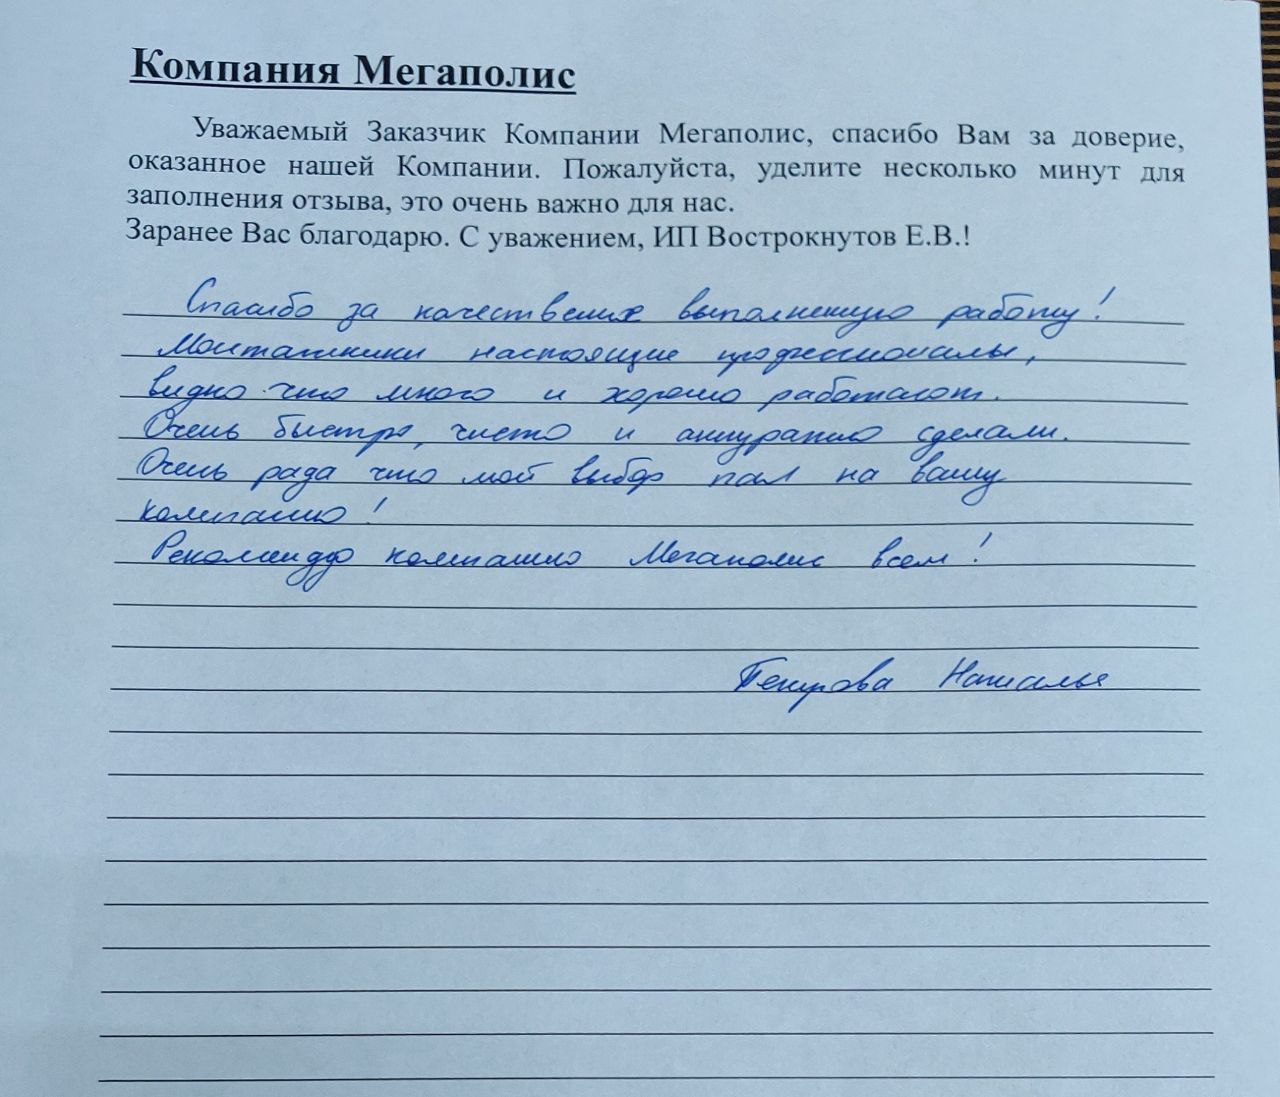 Компания Мегаполис
Уважаемый Заказчик Компании Мегаполис, спасибо Вам за доверие,
оказанное нашей Компании. Пожалуйста, уделите несколько минут для
заполнения отзыва, это очень важно для нас.
Заранее Вас благодарю. С уважением, ИП Вострокнутов Е.В.!
Спасибо за качественно выполненную работу!
Монтажники настоящие профессионалы,
видно что много и хорошо работают.
Очень быстро, чисто и аккуратно сделали.
Очень рада что мой выбор пал на вашу
компанию!
Рекомендую компанию Мегаполис всем!
Наталья